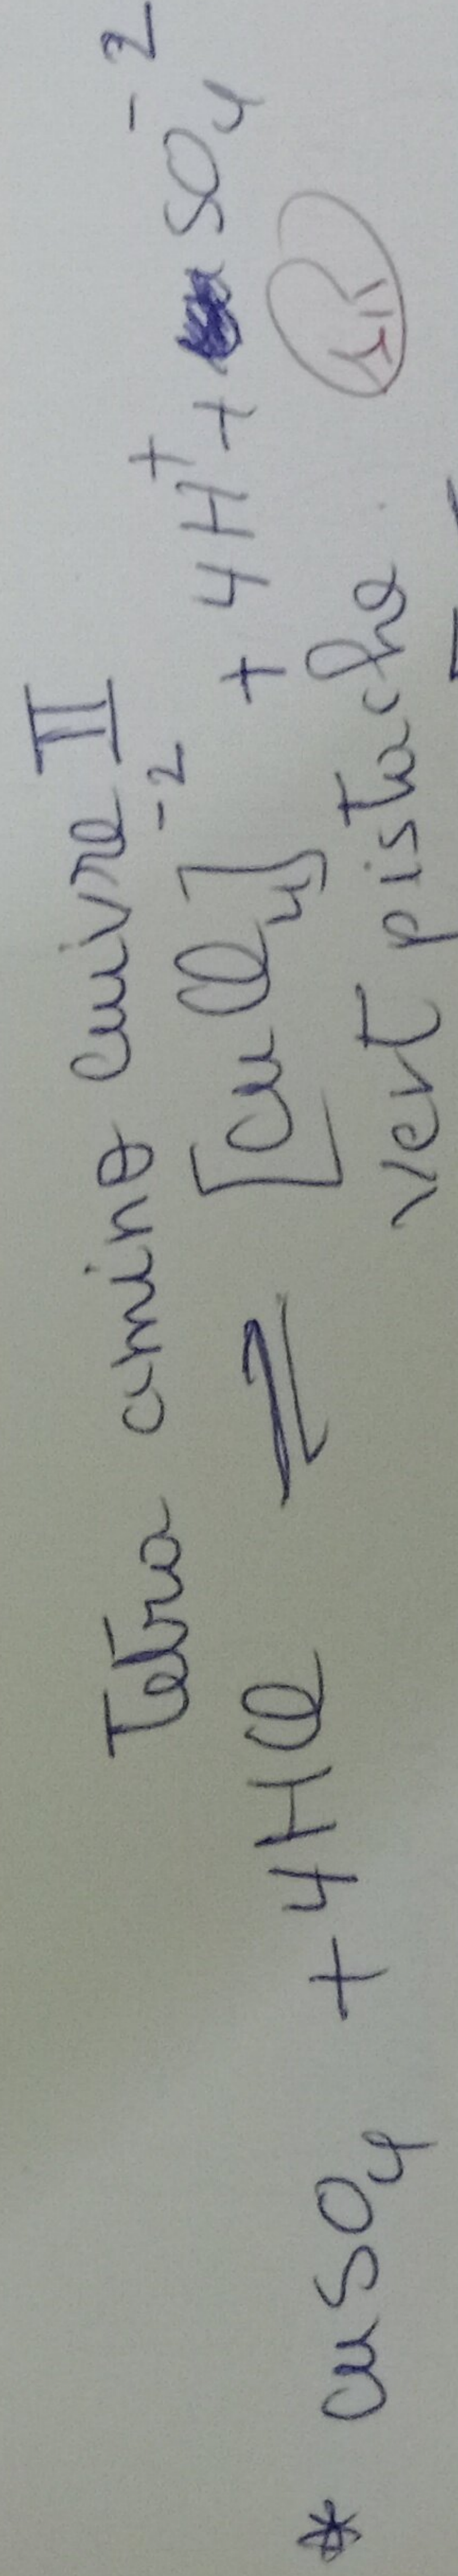 Tetra amine cuivre II
* CuSO4 + 4HCl ⇌ [CuCl4]-2 + 4H+ + SO4-2
vert pistache